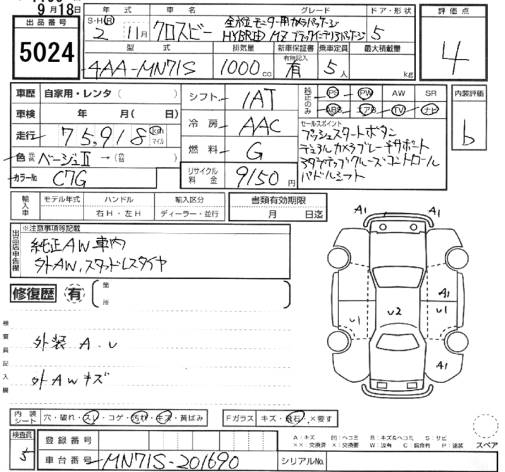 9月18日
出品番号
5024
S・H・R 年式 車名 グレード ドア・形状
2 11月 クロスビー 全方位モニター用カメラパッケージ HYBRID MZ 5
型式 排気量 新車保証書 乗車定員 最大積載量
4AA-MN71S 1000cc 有 5人 kg
評価点
4
車歴 自家用・レンタ( )
車検 年 月( 日)
走行 75,918 km マイル
色 ベージュⅡ →(
カラーNo C7G
シフト 1AT
冷房 AAC
燃料 G
リサイクル料金 9150円
純正のみ PS PW AW SR
ABS エアB TV ナビ
セールスポイント
プッシュスタートボタン
デュアルカメラブレーキサポート
アダプティブクルーズ・コントロール
パドルシフト
内装評価
b
輸入車 モデル年式 ハンドル 輸入区分
右H・左H ディーラー・並行
書類有効期限
月 日迄
出品店申告欄
※注意事項等記載
純正AW車内
外AW、スタッドレスタイヤ
修復歴 有
箇所
検査員記入欄
外装 A、U
外AWキズ
A1 A1
U1 U2 U1
A1 A1
内装シート 穴・破れ・スレ・コゲ・汚れ・キズ・黄ばみ
Fガラス キズ・飛石・×要す
検査員 5
登録番号
車台番号 MN71S-201690
シリアルNo.
スペア